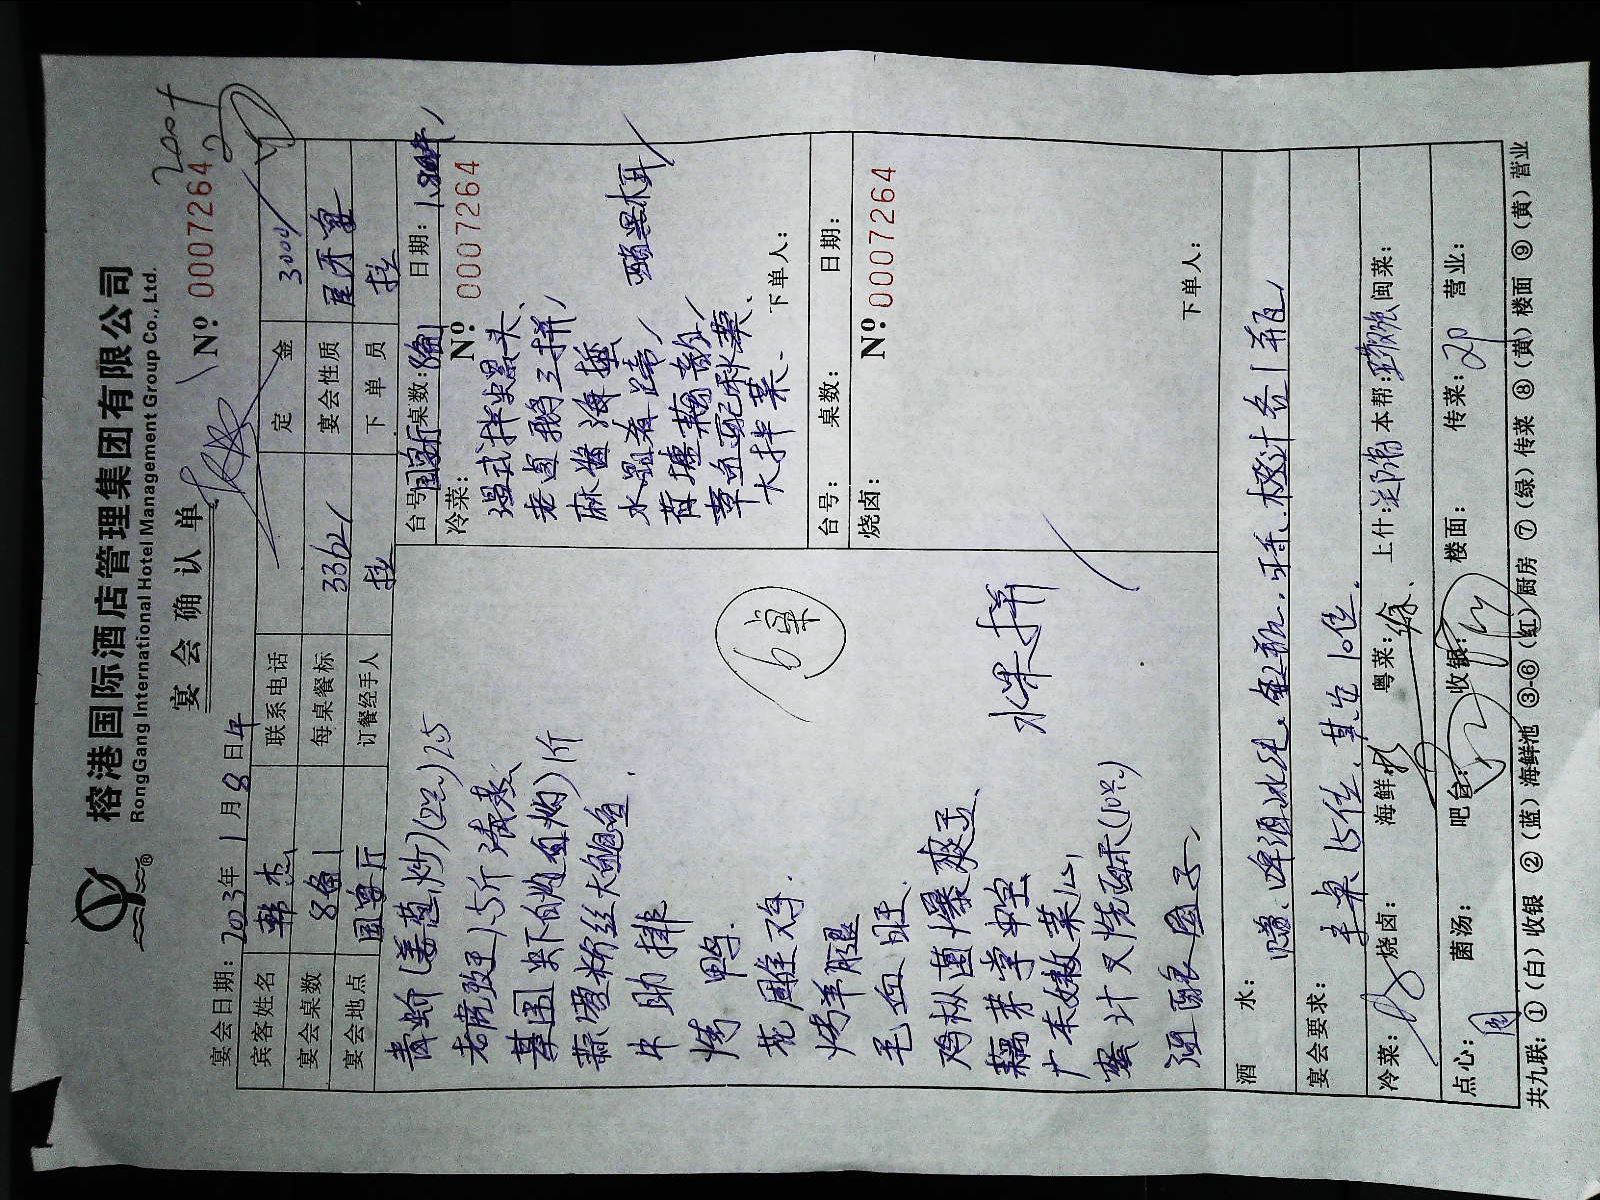 榕港国际酒店管理集团有限公司
RongGang International Hotel Management Group Co., Ltd.
宴会确认单
№ 0007264
宴会日期: 2023年1月8日
宾客姓名 韩杰 联系电话 定金 3000
宴会桌数 8备1 每桌餐标 3362 宴会性质
宴会地点 国宴厅 订餐经手人 下单员
青蚧(姜葱炒)(22只)25
老虎斑1.5斤清蒸
基围虾(白灼)1斤
蒜蓉粉丝大鲍鱼
牛肋排
烤鸭
花雕鸡
烤羊腿
毛血旺
鸡枞菌爆爽豆
藕芽学虾宝
广东嫩菜心
蜜汁叉烧酥(10只)
酒酿圆子
6桌
水果拼
台号: 国宴厅 桌数: 8备1 日期: 1.8
冷菜:
№ 0007264
温式拌螺头
老卤鹅三拼
麻酱海蜇
水晶肴蹄
章鱼配秋葵
大拌菜
醋黑木耳
下单人:
台号: 桌数: 日期:
烧卤:
№ 0007264
下单人:
酒水:
宴会要求: 主桌15位、其它10位
冷菜: 烧卤: 海鲜: 粤菜: 徐 上什: 本帮: 闽菜:
点心: 周 菌汤: 吧台: 收银: 楼面: 传菜: 营业:
共九联: ①(白)收银 ②(蓝)海鲜池 ③-⑥(红)厨房 ⑦(绿)传菜 ⑧(黄)楼面 ⑨(黄)营业